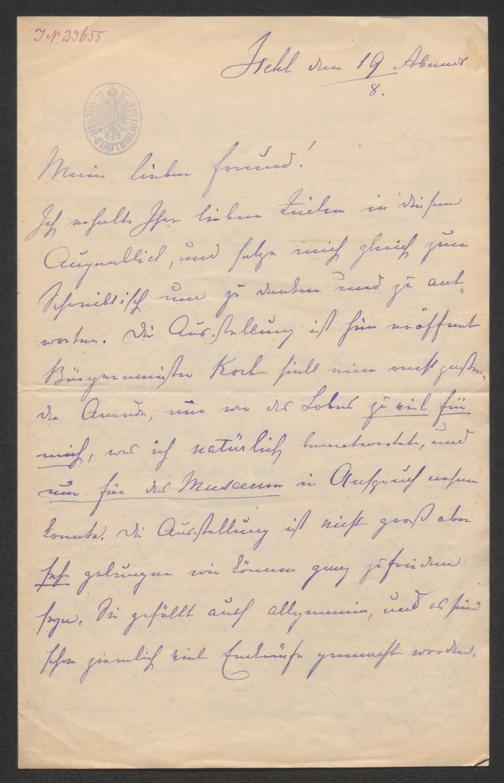 J.N 33655
Ischl den 19/8. Abends
Mein lieber Freund!
Ich erhalte Ihre lieben Zeilen in diesem
Augenblick, und setze mich gleich zum
Schreibtisch um zu danken und zu ant-
worten. Die Ausstellung ist hier eröffnet
Bürgermeister Koch hielt eine recht passen-
de Anrede, nur war des Lobes zu viel für
mich, was ich natürlich beantwortete, und
nur für das Museum in Anspruch nehmen
konnte. Die Ausstellung ist nicht groß aber
sehr gelungen wir können ganz zufrieden
seyn. Sie gefällt auch allgemein, und es sind
schon ziemlich viel Einkäufe gemacht worden.